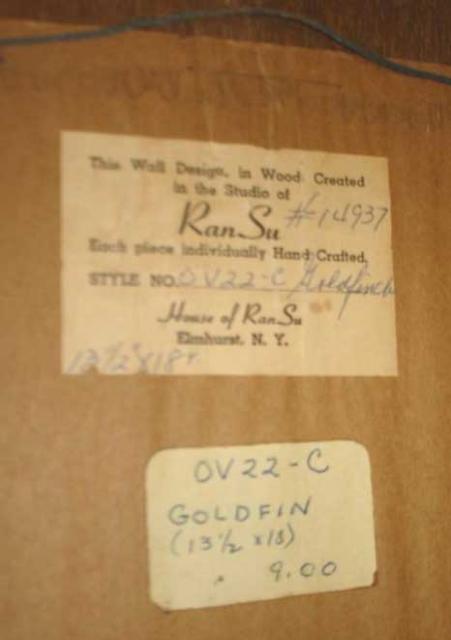 This Wall Design, in Wood Created
in the Studio of
RanSu #14937
Each piece individually Hand Crafted.
STYLE NO. OV22-C Goldfinch
House of RanSu
Elmhurst, N. Y.
OV22-C
GOLDFIN
(13 1/2 x 18)
9.00